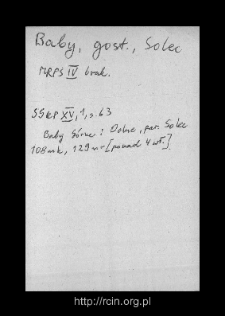 Baby, gost., Solec
MRPS IV brak.
SGKP XV, 1, s. 63
Baby Górne i Dolne, par. Solec
108 mk, 129 m [ponad 4 wł.]
http://rcin.org.pl